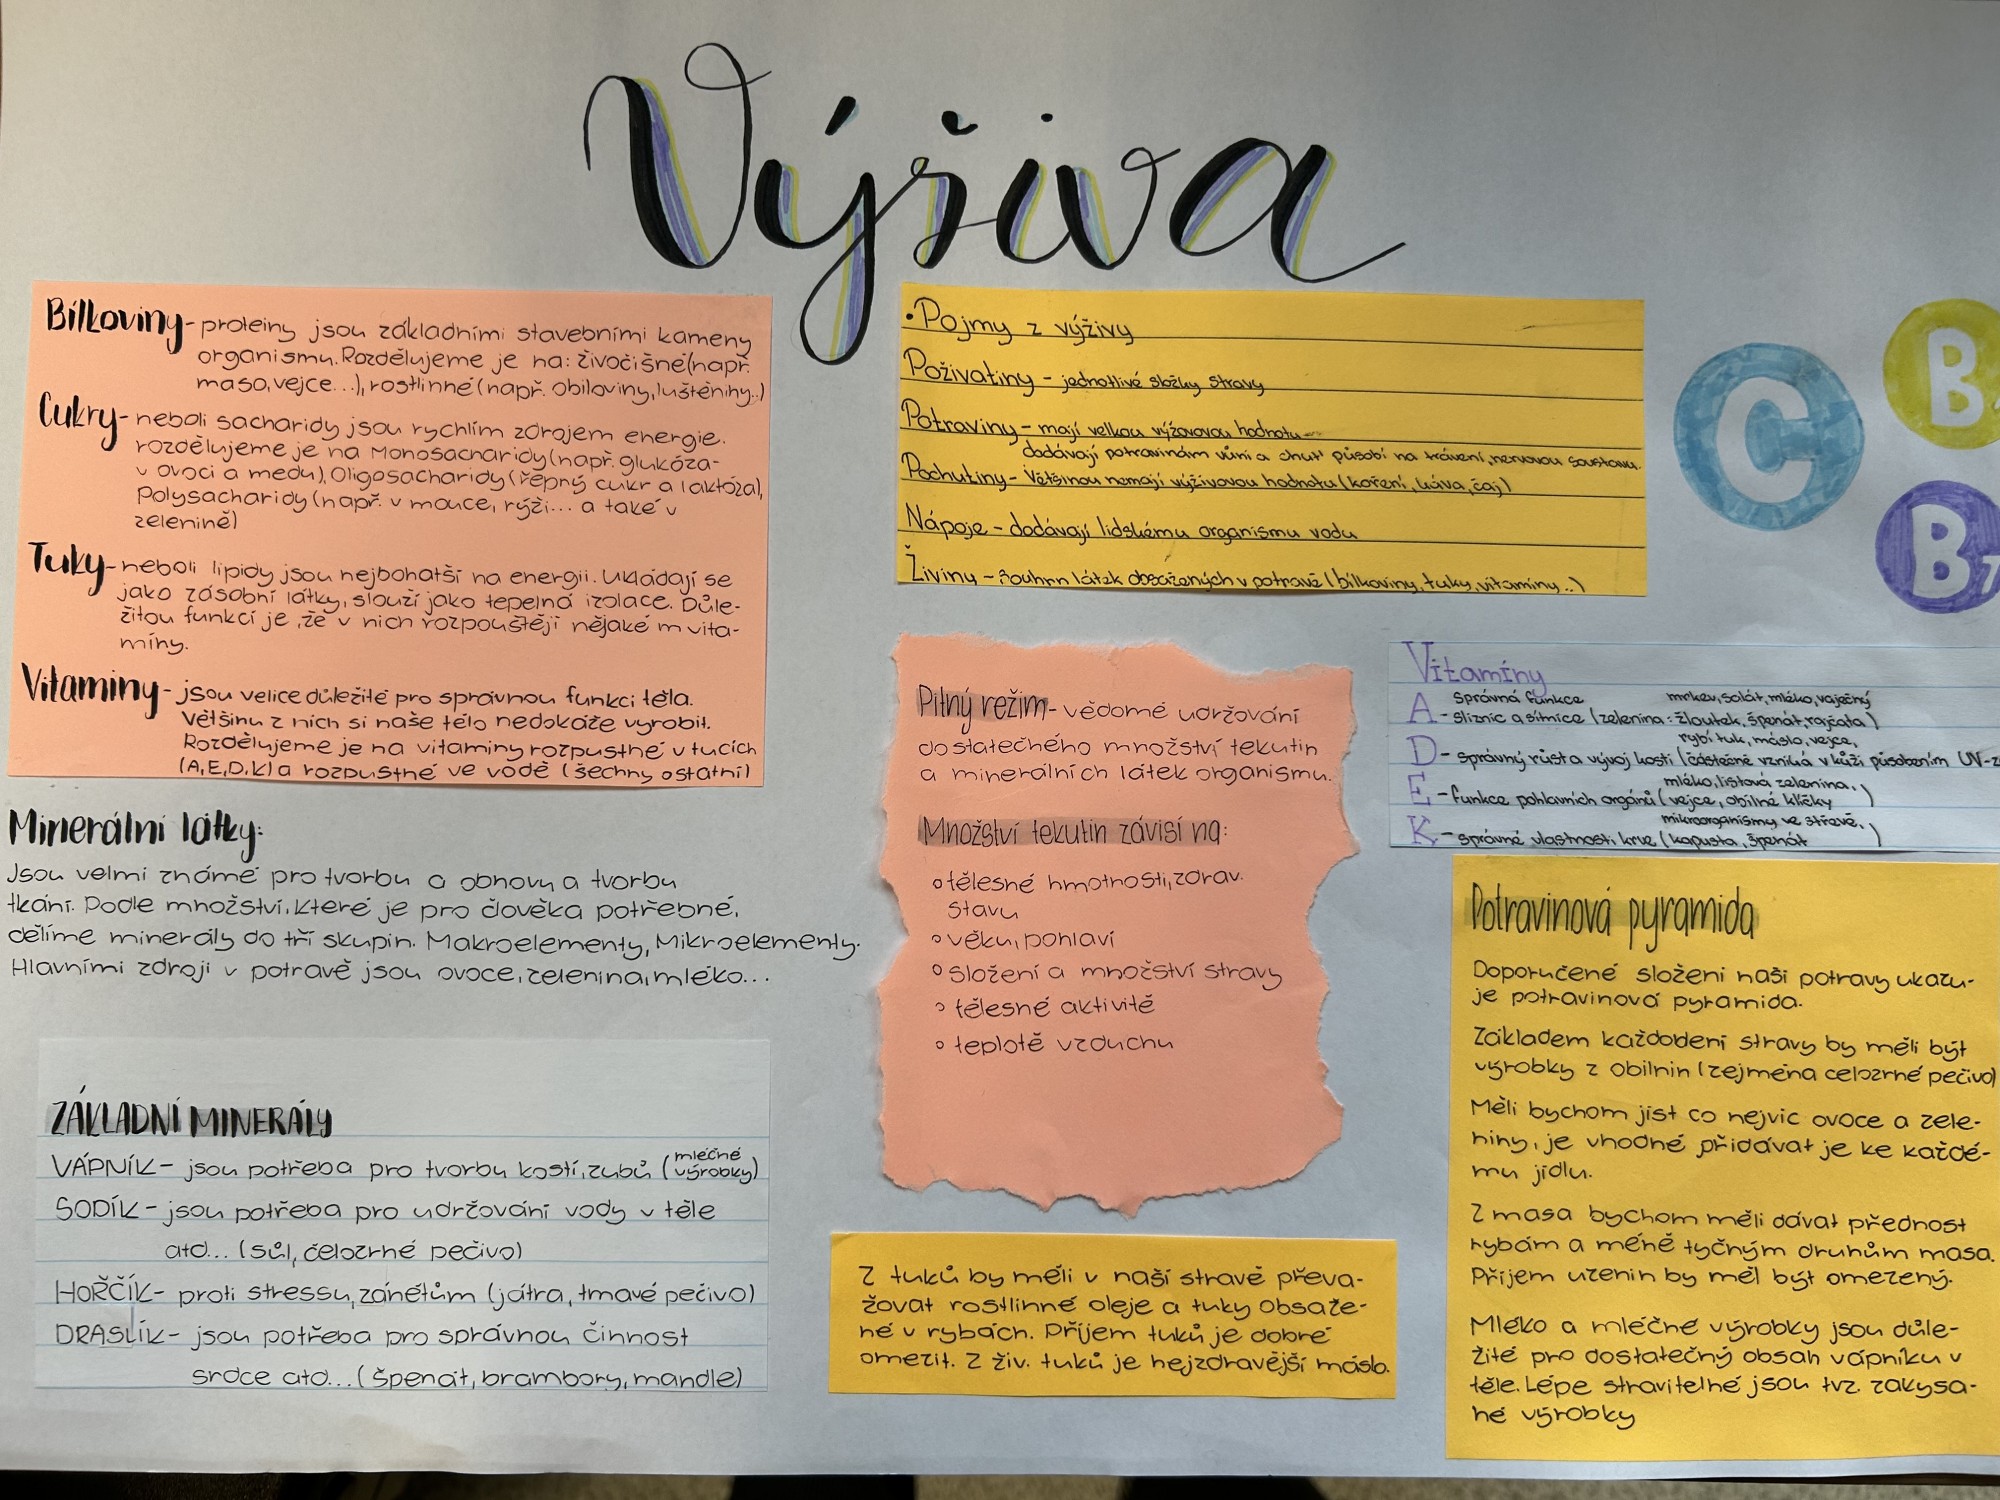 Výživa
Bílkoviny - proteiny jsou základními stavebními kameny
organismu. Rozdělujeme je na: živočišné (např.
maso, vejce...), rostlinné (např. obiloviny, luštěniny..)
Cukry - neboli sacharidy jsou rychlím zdrojem energie.
rozdělujeme je na Monosacharidy (např. glukóza-
v ovoci a medu), Oligosacharidy (řepný cukr a laktóza),
Polysacharidy (např. v mouce, rýži... a také v
zelenině)
Tuky - neboli lipidy jsou nejbohatší na energii. Ukládají se
jako zásobní látky, slouží jako tepelná izolace. Důle-
žitou funkcí je, že v nich rozpouštějí nějaké m vita-
míny.
Vitamíny - jsou velice důležité pro správnou funkci těla.
Většinu z nich si naše tělo nedokáže vyrobit.
Rozdělujeme je na vitamíny rozpustné v tucích
(A,E,D,K) a rozpustné ve vodě (šechny ostatní)
Minerální látky:
Jsou velmi známé pro tvorbu a obnovu a tvorbu
tkání. Podle množství, které je pro člověka potřebné,
dělíme minerály do tří skupin. Makroelementy, Mikroelementy.
Hlavními zdroji v potravě jsou ovoce, zelenina, mléko...
ZÁKLADNÍ MINERÁLY
VÁPNÍK - jsou potřeba pro tvorbu kostí, zubů (mléčné výrobky)
SODÍK - jsou potřeba pro udržování vody v těle
atd... (sůl, celozrné pečivo)
HOŘČÍK - proti stressu, zánětům (játra, tmavé pečivo)
DRASLÍK - jsou potřeba pro správnou činnost
srdce atd... (špenát, brambory, mandle)
• Pojmy z výživy
Poživatiny - jednotlivé složky stravy
Potraviny - mají velkou výživovou hodnotu
dodávají potravinám vůni a chuť působí na trávení, nervovou soustavu.
Pochutiny - Většinou nemají výživovou hodnotu (koření, káva, čaj)
Nápoje - dodávají lidskému organismu vodu
Živiny - souhrn látek obsažených v potravě (bílkoviny, tuky, vitamíny..)
Pitný režim - vědomé udržování
dostatečného množství tekutin
a minerálních látek organismu.
Množství tekutin závisí na:
° tělesné hmotnosti, zdrav.
stavu
° věku, pohlaví
° složení a množství stravy
° tělesné aktivitě
° teplotě vzduchu
Z tuků by měli v naší stravě převa-
žovat rostlinné oleje a tuky obsaže-
né v rybách. Příjem tuků je dobré
omezit. Z živ. tuků je nejzdravější máslo.
C
B
B7
Vitamíny
správná funkce mrkev, salát, mléko, vaječný
A - sliznic a sítnice (zelenina: žloutek, špenát, rajčata)
rybí tuk, máslo, vejce,
D - správný růst a vývoj kostí (částečně vzniká v kůži působením UV-z
mléko, listová zelenina,
E - funkce pohlavních orgánů (vejce, obilné klíčky )
mikroorganismy ve střevě,
K - správné vlastnosti krve (kapusta, špenát )
Potravinová pyramida
Doporučené složení naší potravy ukazu-
je potravinová pyramida.
Základem každodení stravy by měli být
výrobky z obilnin (zejména celozrné pečivo)
Měli bychom jíst co nejvíc ovoce a zele-
niny, je vhodné přidávat je ke každé-
mu jídlu.
Z masa bychom měli dávat přednost
rybám a méně tyčným druhům masa.
Příjem uzenin by měl být omezený.
Mléko a mléčné výrobky jsou důle-
žité pro dostatečný obsah vápníku v
těle. Lépe stravitelné jsou tvz. zakysa-
né výrobky